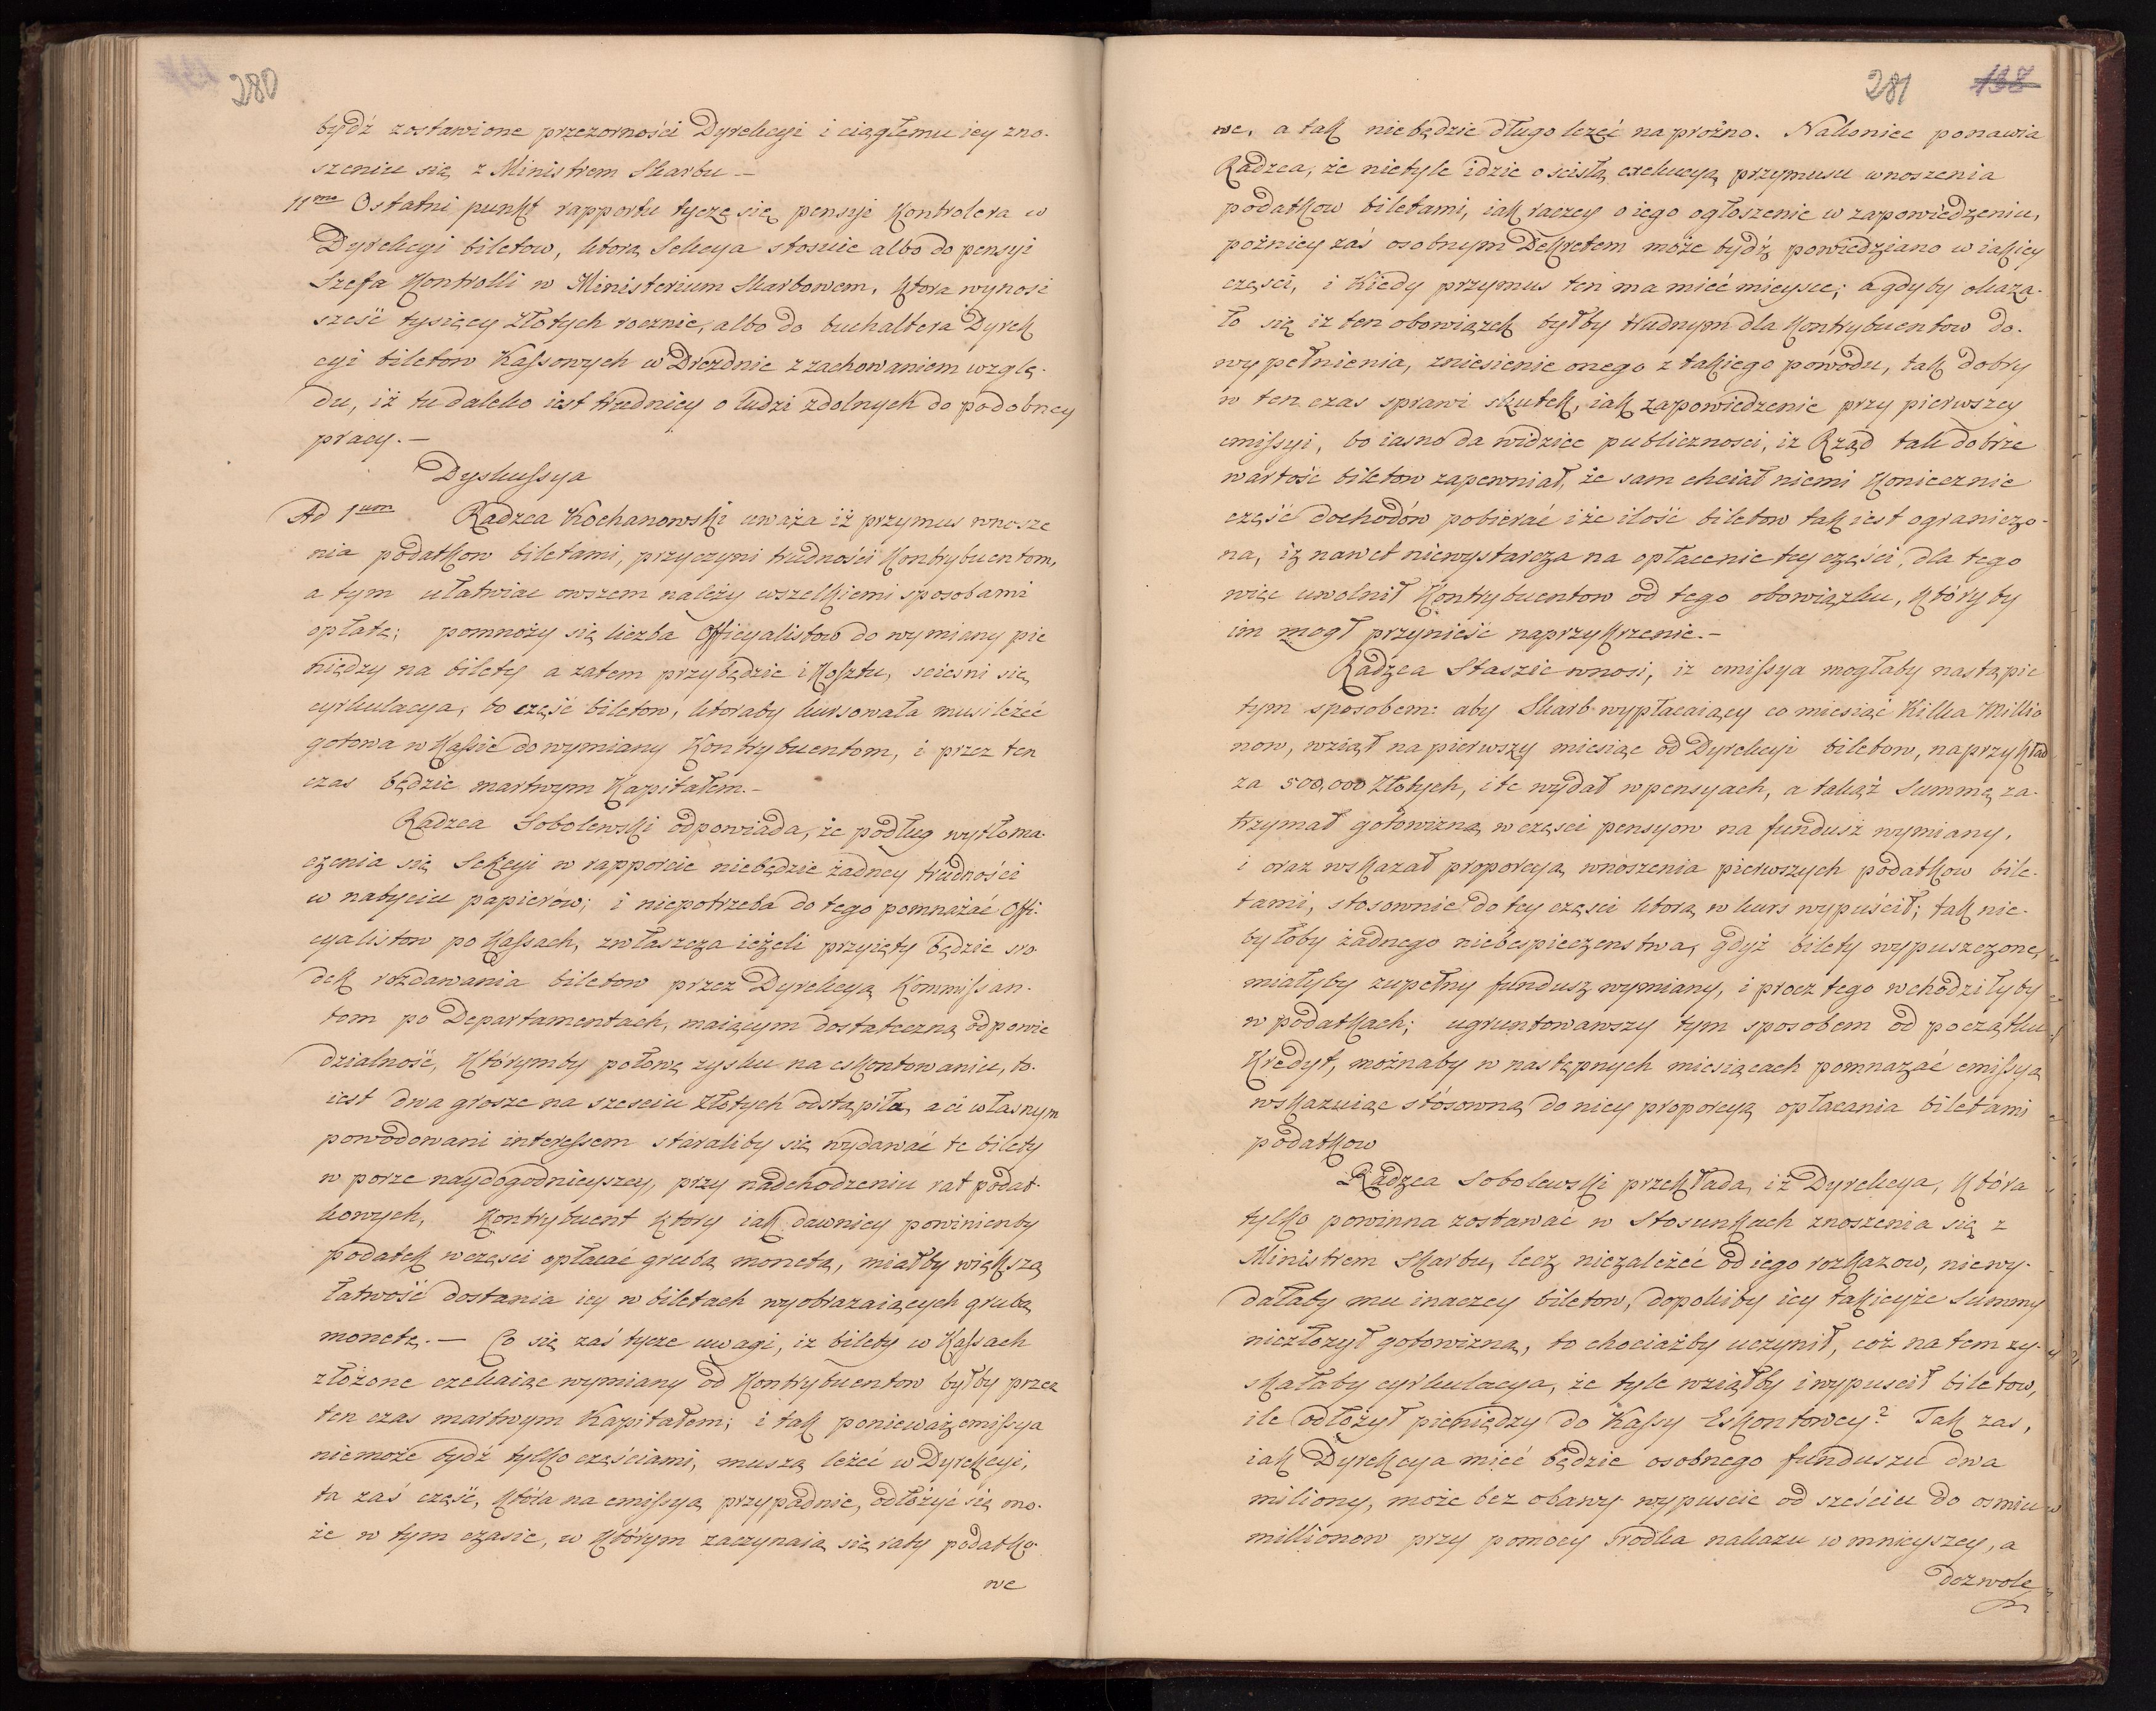 280
bydź zostawione przezorności Dyrekcyi i ciągłemu iey zno-
szeniu się z Ministrem Skarbu –
11mo Ostatni punkt rapportu tyczę się pensyi Kontrolera w
Dyrekcyi biletow, ktorą Sekcya stosuie albo do pensyi
Szefa Kontrolli w Ministerium Skarbowem, ktora wynosi
sześć tysięcy Złotych rocznie, albo do buchaltera Dyrek
cyi biletow Kassowych w Dreźdnie z zachowaniem wzglę-
du, iż tu daleko iest trudniey o ludzi zdolnych do podobney
pracy. –
Dyskussya
Ad 1um Radzca Kochanowski uważa iż przymus wnosze
nia podatkow biletami, przyczyni trudności Kontrybuentom,
a tym ułatwiac owszem należy wszelkiemi sposobami
opłatę; pomnoży się liczba Officyalistow do wymiany pie
niędzy na bilety a zatem przybędzie i Kosztu, sciesni się
cyrkulacya, bo część biletow, ktoraby kursowała musi leżéć
gotowa w Kassie do wymiany Kontrybuentom, i przez ten
czas będzie martwym Kapitałem. –
Radzca Sobolewski odpowiada, że podług wytłoma-
czenia się Sekcyi w rapporcie niebędzie żadney trudności
w nabyciu papierów; i niepotrzeba do tego pomnażać Offi-
cyalistow po Kassach, zwłaszcza ieżeli przyięty będzie śro
dek rozdawania biletow przez Dyrekcyą Kommissan-
tom po Departamentach, maiącym dostateczną odpowie
dzialność, Którymby połowę zysku na eskontowaniu, to-
iest dwa grosze na szesciu Złotych odstąpiła, a ci własnym
powodowani interessem staraliby się wydawać te bilety
w porze naydogodnieyszey, przy nadchodzeniu rat podat-
kowych, Kontrybuent ktory iak dawniey powinienby
podatek wczęsci opłacać grubą monetą, miałby większą
łatwość dostania iey w biletach wyobrazaiących grubą
monetę. – Co się zaś tycze uwagi, iz bilety w Kassach
złożone czekaiąc wymiany od Kontrybuentow byłby przez
ten czas martwym Kapitałem; i tak ponieważ emissya
niemoże bydź tylko częściami, muszą leżeć w Dyrekcyi,
ta zaś część, Która na emissyą przypadnie, odłożyć się mo-
że w tym czasie, w Którym zaczynaią się raty podatko-
we
281 138
we, a tak niebędzie długo leżéć na prożno. Nakoniec ponawia
Radzca, że nietyle idzie o scisłą exekucyą przymusu wnoszenia
podatkow biletami, iak raczey o iego ogłoszenie w zapowiedzeniu,
pożniey zaś osobnym Dekretem może bydź powiedziano w iakiey
częsci, i Kiedy przymus ten ma mieć mieysce; a gdyby okaza-
ło się iz ten obowiązek byłby trudnym dla Kontrybuentow do-
wypełnienia, zniesienie onego z takiego powodu, tak dobry
w ten czas sprawi skutek, iak zapowiedzenie przy pierwszey
emissyi, bo iasno da widziec publicznosci, iz Rząd tak dobrze
wartość biletow zapewniał, że sam chciał niemi Koniecznie
część dochodów pobierać i że ilość biletow tak iest ograniczo-
na, iz nawet niewystarcza na opłacenie tey części, dla tego
więc uwolnił Kontrybuentow od tego obowiązku, Któryby
im mogł przynieść naprzykrzenie. –
Radzca Staszic wnosi, iz emissya mogłaby nastąpic
tym sposobem: aby Skarb wypłacaiący co miesiąc Kilka Millio
now, wziął na pierwszy miesiąc od Dyrekcyi biletow, naprzykład
za 500,000 Złotych, i te wydał w pensyach, a takąż Summę za-
trzymał gotowizną w częsci pensyow na fundusz wymiany,
i oraz wskazał proporcyą wnoszenia pierwszych podatkow bile-
tami, stosownie do tey częsci ktorą w kurs wypuścił; tak nie-
byłoby żadnego niebespieczenstwa, gdyż bilety wypuszczone,
miałyby zupełny fundusz wymiany, i procz tego wchodziłyby
w podatkach; ugruntowawszy tym sposobem od początku
Kredyt, możnaby w następnych miesiącach pomnażać emissyą
wskazuiąc stósowną do niey proporcyą opłacania biletami
podatkow
Radzca Sobolewski przekłada, iż Dyrekcya, Która
tylko powinna zostawać w Stosunkach znoszenia się z
Ministrem Skarbu, lecz niezależéć od iego rozkazow, niewy-
dałaby mu inaczey biletow, dopokiby iey takieyże Summy
niezłożył gotowizną, to chociażby uczynił, coż na tem zy-
skałaby cyrkulacya, że tyle wziąłby i wypuscił biletow,
ile odłożył pieniędzy do Kassy Eskontowey? Tak zas,
iak Dyrekcya mieć będzie osobnego funduszu dwa
miliony, może bez obawy wypuscic od sześciu do osmiu
millionow przy pomocy srodka nakazu w mnieyszey, a
dozwole